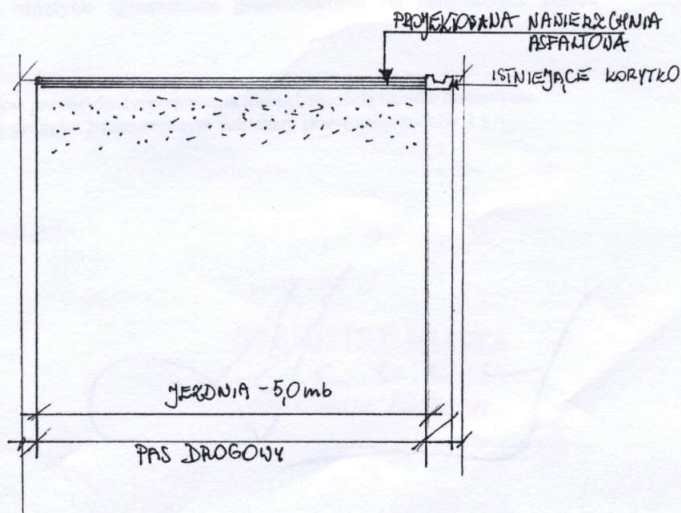 PROJEKTOWANA NAWIERZCHNIA
ASFALTOWA
ISTNIEJĄCE KORYTKO
JEZDNIA - 5,0 mb
PAS DROGOWY